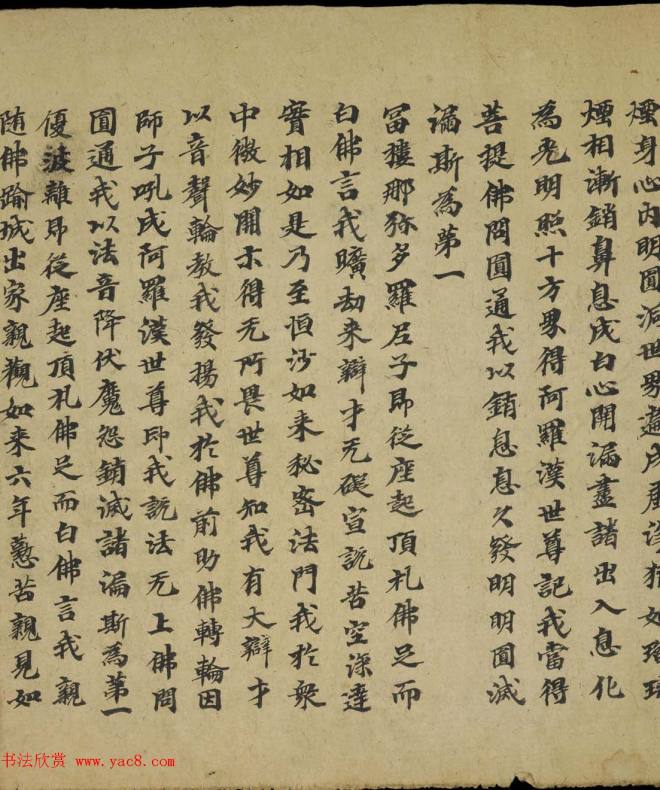 煙身心内明圓洞世界遍成虛淨猶如琉璃
煙相漸銷鼻息成白心開漏盡諸出入息化
為光明照十方界得阿羅漢世尊記我當得
菩提佛問圓通我以銷息息久發明明圓滅
漏斯為第一
富樓那弥多羅尼子即從座起頂礼佛足而
白佛言我曠劫来辯才无礙宣說苦空深達
實相如是乃至恒沙如来秘密法門我於衆
中微妙開示得无所畏世尊知我有大辯才
以音聲輪教我發揚我於佛前助佛轉輪因
師子吼成阿羅漢世尊印我說法无上佛問
圓通我以法音降伏魔怨銷滅諸漏斯為第一
優波離即從座起頂礼佛足而白佛言我親
随佛踰城出家親觀如来六年懃苦親見如
书法欣赏 www.yac8.com